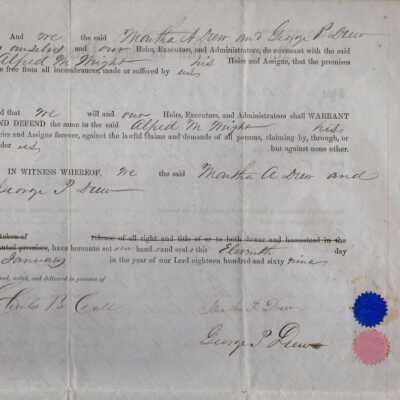 And we the said Martha A Drew and George P. Drew
ourselves and our Heirs, Executors, and Administrators, do covenant with the said
Alfred M Wright his Heirs and Assigns, that the premises
e free from all incumbrances, made or suffered by us
d that we will and our Heirs, Executors, and Administrators shall WARRANT
ND DEFEND the same to the said Alfred M Wright his
eirs and Assigns forever, against the lawful Claims and demands of all persons, claiming by, through, or
der us but against none other.
IN WITNESS WHEREOF, We the said Martha A Drew and
George P Drew
token of release of all right and title of or to both dower and homestead in the
nted premises, have hereunto set our hands and seals this Eleventh day
January in the year of our Lord eighteen hundred and sixty nine
ned, sealed, and delivered in presence of
B Call Martha A Drew
George P Drew